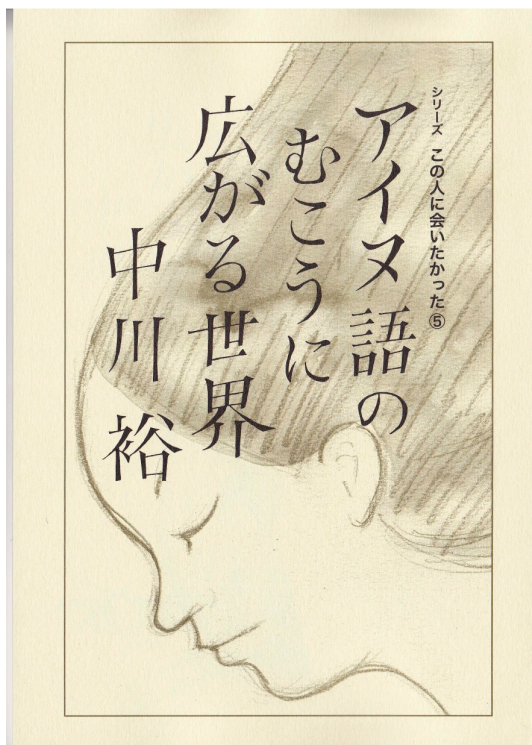 シリーズ この人に会いたかった⑤
アイヌ語の
むこうに
広がる世界
中川裕